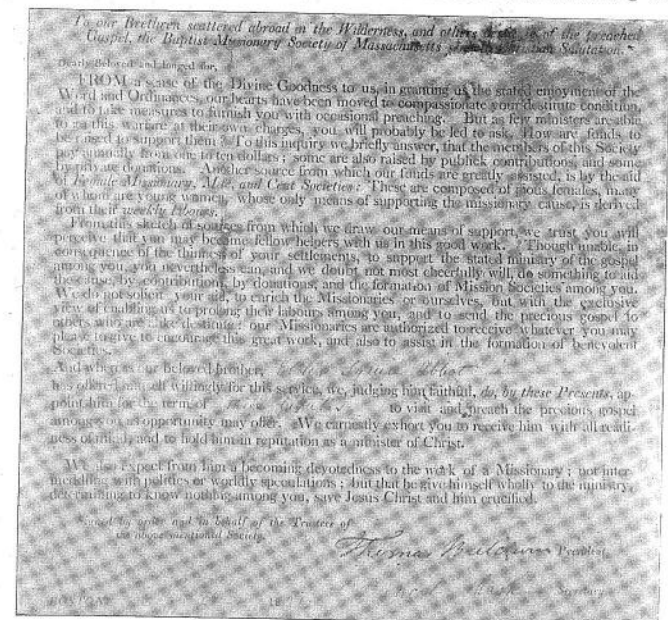 To our Brethren scattered abroad in the Wilderness, and others of the preached
Gospel, the Baptist Missionary Society of Massachusetts Christian Salutation.
Dearly Beloved and longed for,
FROM a sense of the Divine Goodness to us, in granting us the stated enjoyment of the
Word and Ordinances, our hearts have been moved to compassionate your destitute condition,
and to take measures to furnish you with occasional preaching. But as few ministers are able
to go this warfare at their own charges, you will probably be led to ask, How are funds to
be raised to support them? To this inquiry we briefly answer, that the members of this Society
pay annually from one to ten dollars; some are also raised by publick contributions, and some
by private donations. Another source from which our funds are greatly assisted, is by the aid
of Female Missionary, Mite, and Cent Societies: These are composed of pious females, many
of whom are young women, whose only means of supporting the missionary cause, is derived
from their weekly labours.
From this sketch of sources from which we draw our means of support, we trust you will
perceive that you may become fellow helpers with us in this good work. Though unable, in
consequence of the thinness of your settlements, to support the stated ministry of the gospel
among you, you nevertheless can, and we doubt not most cheerfully will, do something to aid
the cause, by contributions, by donations, and the formation of Mission Societies among you.
We do not solicit your aid, to enrich the Missionaries or ourselves, but with the exclusive
view of enabling us to prolong their labours among you, and to send the precious gospel to
others who are alike destitute: our Missionaries are authorized to receive whatever you may
please to give to encourage this great work, and also to assist in the formation of benevolent
Societies.
And whereas our beloved brother,
has offered himself willingly for this service, we, judging him faithful, do, by these Presents, ap-
point him for the term of to visit and preach the precious gospel
among you as opportunity may offer. We earnestly exhort you to receive him with all readi-
ness of mind, and to hold him in reputation as a minister of Christ.
We also expect from him a becoming devotedness to the work of a Missionary; not inter-
meddling with politics or worldly speculations; but that he give himself wholly to the ministry,
determining to know nothing among you, save Jesus Christ and him crucified.
Signed by order and in behalf of the Trustees of
the above mentioned Society.
Thomas Baldwin President.
Secretary.
BOSTON, 18